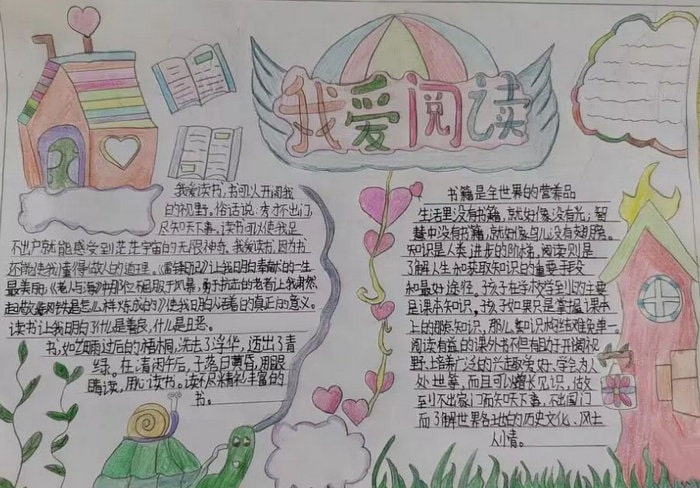 我爱阅读
我爱读书,书可以开阔我
的视野,俗话说:秀才不出门,
尽知天下事。读书可以使我足
不出户就能感受到茫茫宇宙的无限神奇。我爱读书,因为书
还能使我懂得做人的道理。《雷锋日记》让我明白奉献的一生
最美丽,《老人与海》中那位不屈服于风暴,勇于拼击的老者让我肃然
起敬《钢铁是怎么样炼成的》使我明白活着的真正的意义。
读书让我明白了什么是善良,什么是丑恶。
书,如细雨过后的梧桐,洗尽了浮华,透出了青
绿。在清闲午后,于落日黄昏,用眼
睛读,用心读书。读尽精彩丰富的
书。
书籍是全世界的营养品
生活里没有书籍,就好像没有光;智
慧中没有书籍,就好像鸟儿没有翅膀。
知识是人类进步的阶梯,阅读则是
了解人生和获取知识的重要手段
和最好途径。孩子在学校学到的主要
是课本知识,孩子如果只是掌握课本
上的那些知识,那么,知识构结难免单一。
阅读有益的课外书不但有助于开阔视
野,培养广泛的兴趣爱好、学会为人
处世等,而且可以增长见识,做
到不出家门而知天下事,不出国门
而了解世界各地的历史文化、风土
人情。